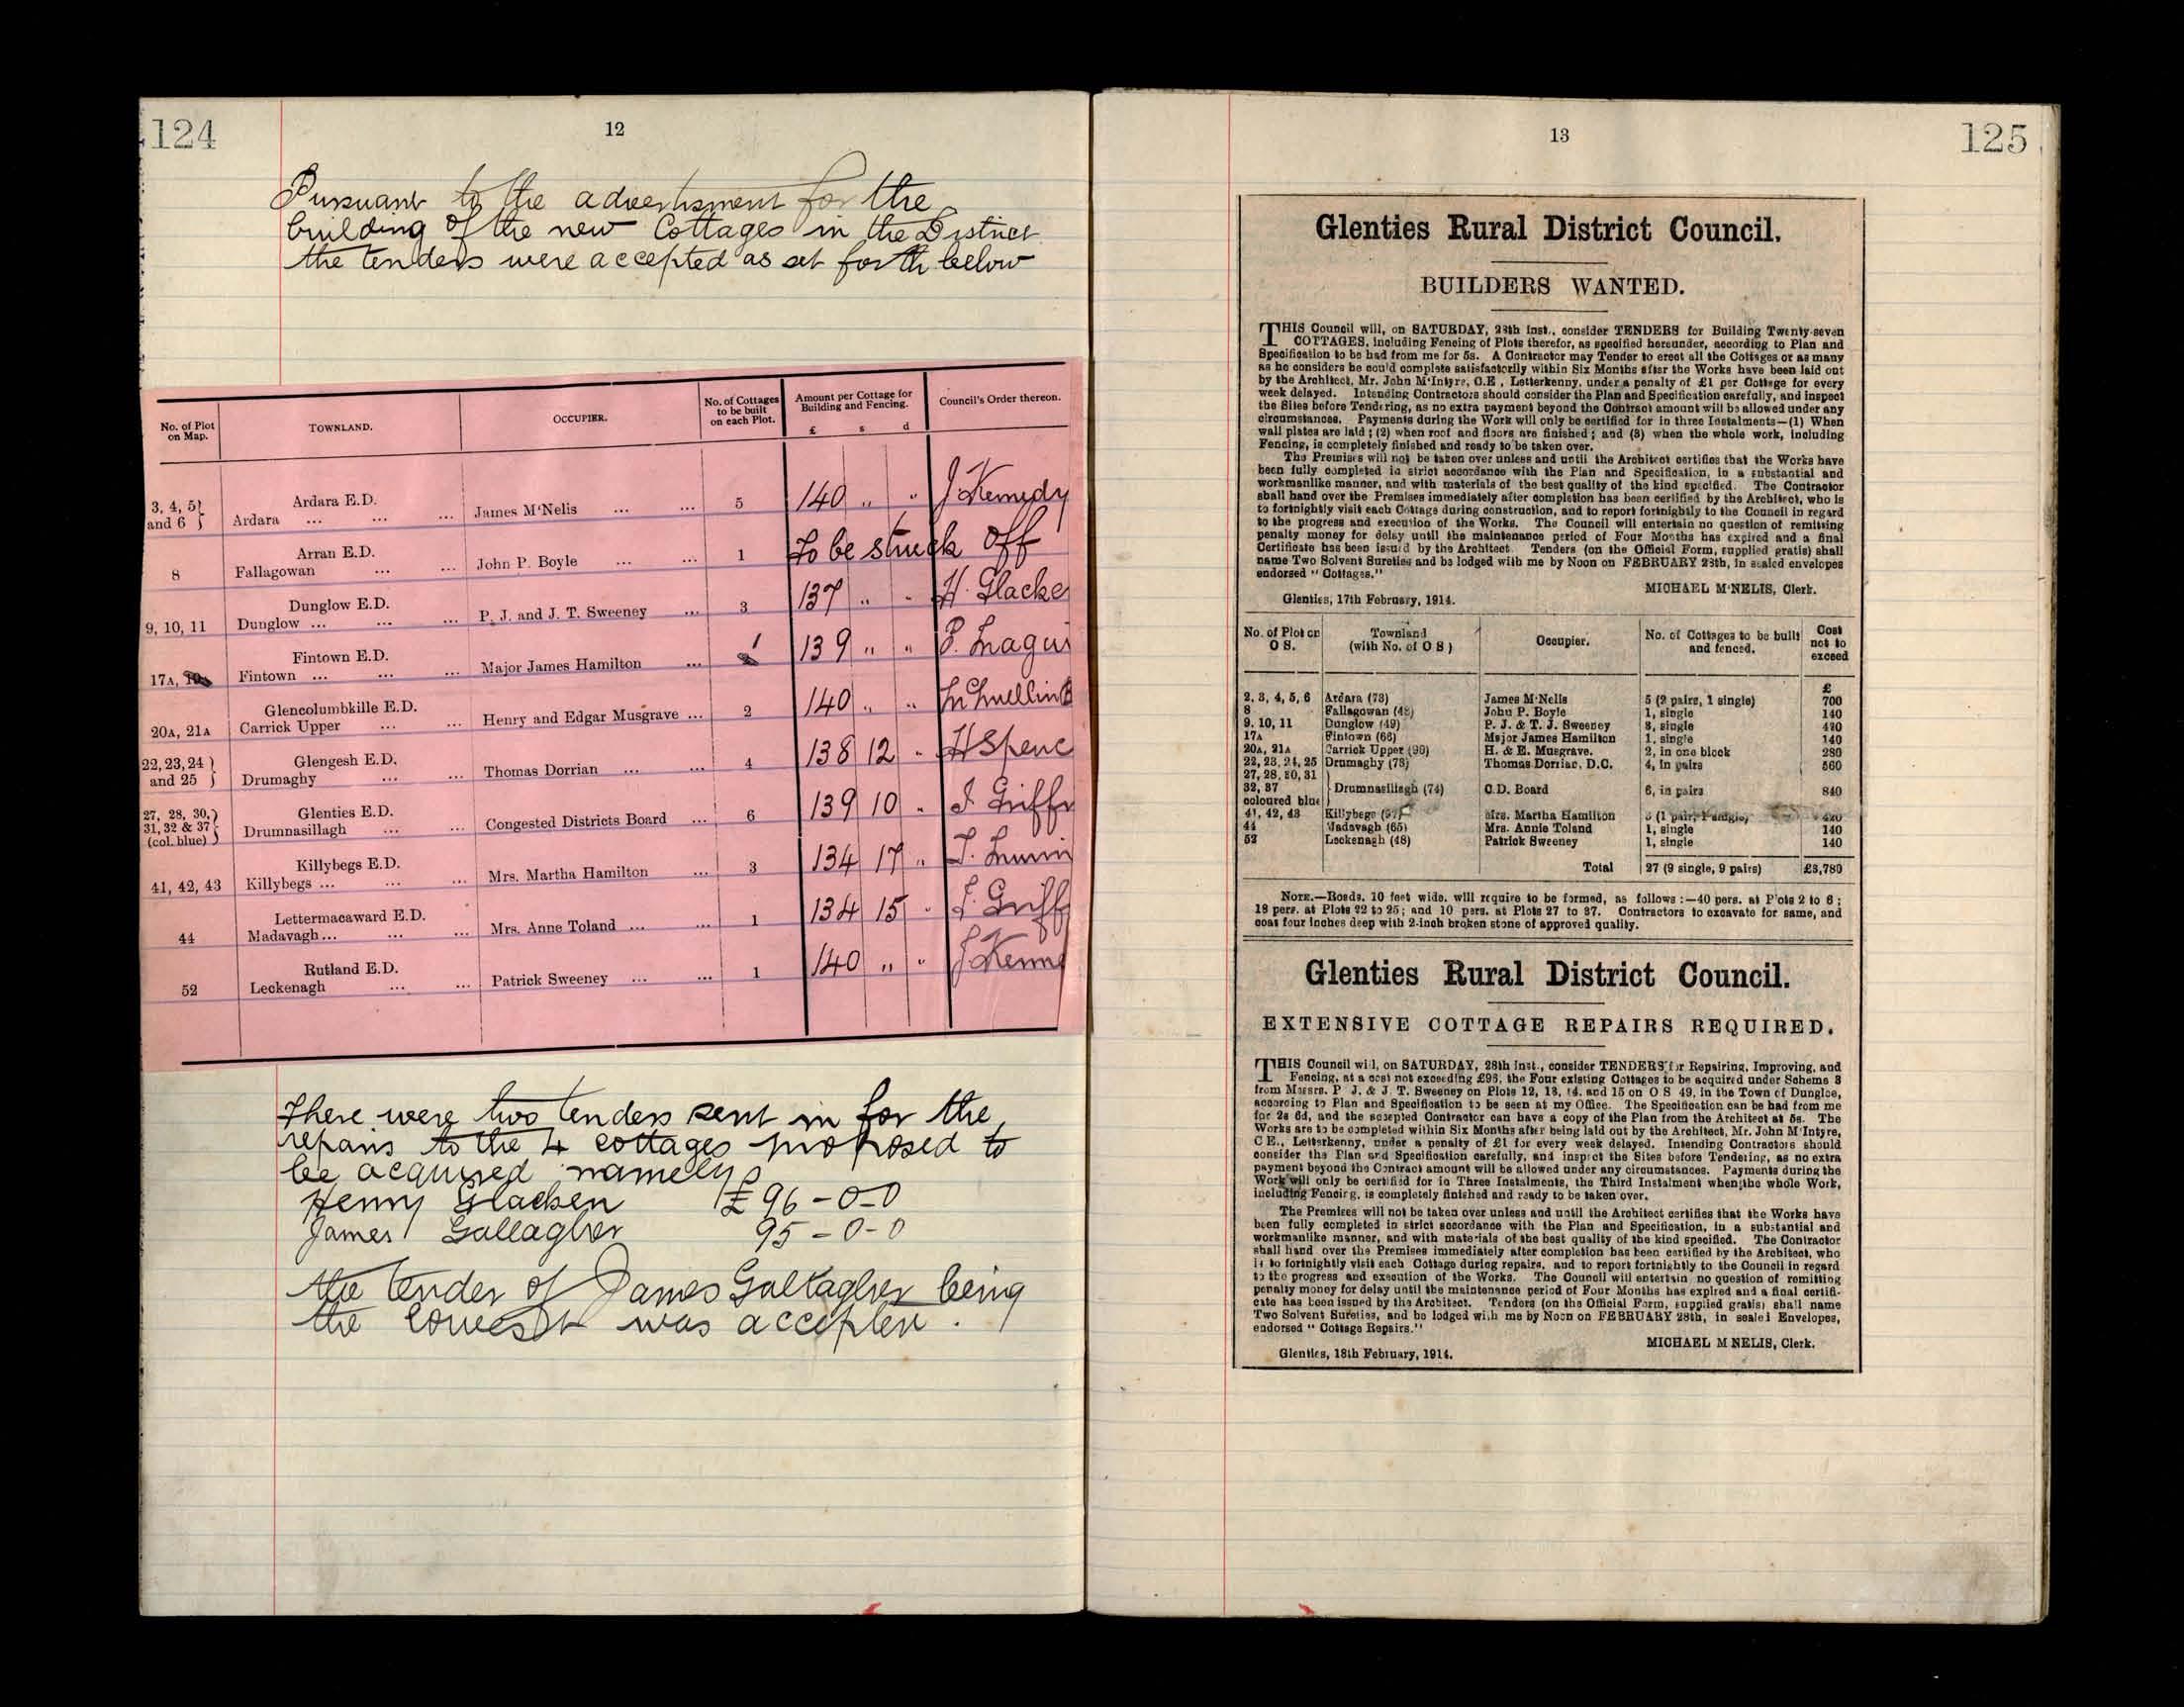 124
12
Pursuant to the advertisment for the
building of the new Cottages in the District
the tenders were accepted as set forth below
No. of Plot on Map. TOWNLAND. OCCUPIER. No. of Cottages to be built on each Plot. Amount per Cottage for Building and Fencing. Council's Order thereon.
£ s d
Ardara E.D.
3, 4, 5 and 6 Ardara ... ... ... James M'Nelis ... ... 5 140 " " J Kennedy
Arran E.D.
8 Fallagowan ... ... John P. Boyle ... ... 1 To be struck off
Dunglow E.D.
9, 10, 11 Dunglow ... ... ... P. J. and J. T. Sweeney ... 3 137 " " H. Glacke
Fintown E.D.
17A, Fintown ... ... ... Major James Hamilton ... 1 139 " " P. Magui
Glencolumbkille E.D.
20A, 21A Carrick Upper ... ... Henry and Edgar Musgrave ... 2 140 " "
Glengesh E.D.
22, 23, 24 and 25 Drumaghy ... ... Thomas Dorrian ... ... 4 138 12 " H Spenc
Glenties E.D.
27, 28, 30, 31, 32 & 37 (col. blue) Drumnasillagh ... ... Congested Districts Board ... 6 139 10 " J. Griff
Killybegs E.D.
41, 42, 43 Killybegs ... ... ... Mrs. Martha Hamilton ... 3 134 17 "
Lettermacaward E.D.
44 Madavagh ... ... ... Mrs. Anne Toland ... ... 1 134 15 " J. Griff
Rutland E.D.
52 Leckenagh ... ... Patrick Sweeney ... ... 1 140 " " J Kenne
There were two tenders sent in for the
repairs to the 4 cottages proposed to
be acquired namely
Henry Glacken £96-0-0
James Gallagher 95-0-0
the tender of James Gallagher being
the lowest was accepted.
13
125
Glenties Rural District Council.
BUILDERS WANTED.
THIS Council will, on SATURDAY, 28th Inst., consider TENDERS for Building Twenty-seven
COTTAGES, including Fencing of Plots therefor, as specified hereunder, according to Plan and
Specification to be had from me for 5s. A Contractor may Tender to erect all the Cottages or as many
as he considers he could complete satisfactorily within Six Months after the Works have been laid out
by the Architect, Mr. John M'Intyre, C.E., Letterkenny, under a penalty of £1 per Cottage for every
week delayed. Intending Contractors should consider the Plan and Specification carefully, and inspect
the Sites before Tendering, as no extra payment beyond the Contract amount will be allowed under any
circumstances. Payments during the Work will only be certified for in three Instalments—(1) When
wall plates are laid; (2) when roof and floors are finished; and (3) when the whole work, including
Fencing, is completely finished and ready to be taken over.
The Premises will not be taken over unless and until the Architect certifies that the Works have
been fully completed in strict accordance with the Plan and Specification, in a substantial and
workmanlike manner, and with materials of the best quality of the kind specified. The Contractor
shall hand over the Premises immediately after completion has been certified by the Architect, who is
to fortnightly visit each Cottage during construction, and to report fortnightly to the Council in regard
to the progress and execution of the Works. The Council will entertain no question of remitting
penalty money for delay until the maintenance period of Four Months has expired and a final
Certificate has been issued by the Architect. Tenders (on the Official Form, supplied gratis) shall
name Two Solvent Sureties and be lodged with me by Noon on FEBRUARY 28th, in sealed envelopes
endorsed "Cottages."
MICHAEL M'NELIS, Clerk.
Glenties, 17th February, 1914.
No. of Plot on O S. Townland (with No. of O S) Occupier. No. of Cottages to be built and fenced. Cost not to exceed
£
2, 3, 4, 5, 6 Ardara (73) James M'Nelis 5 (2 pairs, 1 single) 700
8 Fallagowan (48) John P. Boyle 1, single 140
9, 10, 11 Dunglow (49) P. J. & T. J. Sweeney 3, single 420
17A Fintown (66) Major James Hamilton 1, single 140
20A, 21A Carrick Upper (90) H. & E. Musgrave. 2, in one block 280
22, 23, 24, 25 Drumaghy (73) Thomas Dorrian, D.C. 4, in pairs 560
27, 28, 30, 31
32, 37 Drumnasillagh (74) C.D. Board 6, in pairs 840
coloured blue
41, 42, 43 Killybegs (97) Mrs. Martha Hamilton 3 (1 pair, 1 single) 420
44 Madavagh (65) Mrs. Annie Toland 1, single 140
52 Leckenagh (48) Patrick Sweeney 1, single 140
Total 27 (9 single, 9 pairs) £3,780
NOTE.—Roads, 10 feet wide, will require to be formed, as follows:—40 pers. at Plots 2 to 6;
18 pers. at Plots 22 to 25; and 10 pers. at Plots 27 to 37. Contractors to excavate for same, and
coat four inches deep with 2-inch broken stone of approved quality.
Glenties Rural District Council.
EXTENSIVE COTTAGE REPAIRS REQUIRED.
THIS Council will, on SATURDAY, 28th Inst., consider TENDERS for Repairing, Improving, and
Fencing, at a cost not exceeding £96, the Four existing Cottages to be acquired under Scheme 3
from Messrs. P J. & J. T. Sweeney on Plots 12, 13, 14, and 15 on O S 49, in the Town of Dungloe,
according to Plan and Specification to be seen at my Office. The Specification can be had from me
for 2s 6d, and the accepted Contractor can have a copy of the Plan from the Architect at 5s. The
Works are to be completed within Six Months after being laid out by the Architect, Mr. John M'Intyre,
C E., Letterkenny, under a penalty of £1 for every week delayed. Intending Contractors should
consider the Plan and Specification carefully, and inspect the Sites before Tendering, as no extra
payment beyond the Contract amount will be allowed under any circumstances. Payments during the
Work will only be certified for in Three Instalments, the Third Instalment when the whole Work,
including Fencing, is completely finished and ready to be taken over.
The Premises will not be taken over unless and until the Architect certifies that the Works have
been fully completed in strict accordance with the Plan and Specification, in a substantial and
workmanlike manner, and with materials of the best quality of the kind specified. The Contractor
shall hand over the Premises immediately after completion has been certified by the Architect, who
is to fortnightly visit each Cottage during repairs, and to report fortnightly to the Council in regard
to the progress and execution of the Works. The Council will entertain no question of remitting
penalty money for delay until the maintenance period of Four Months has expired and a final certifi-
cate has been issued by the Architect. Tenders (on the Official Form, supplied gratis) shall name
Two Solvent Sureties, and be lodged with me by Noon on FEBRUARY 28th, in sealed Envelopes,
endorsed "Cottage Repairs."
MICHAEL M NELIS, Clerk.
Glenties, 18th February, 1914.